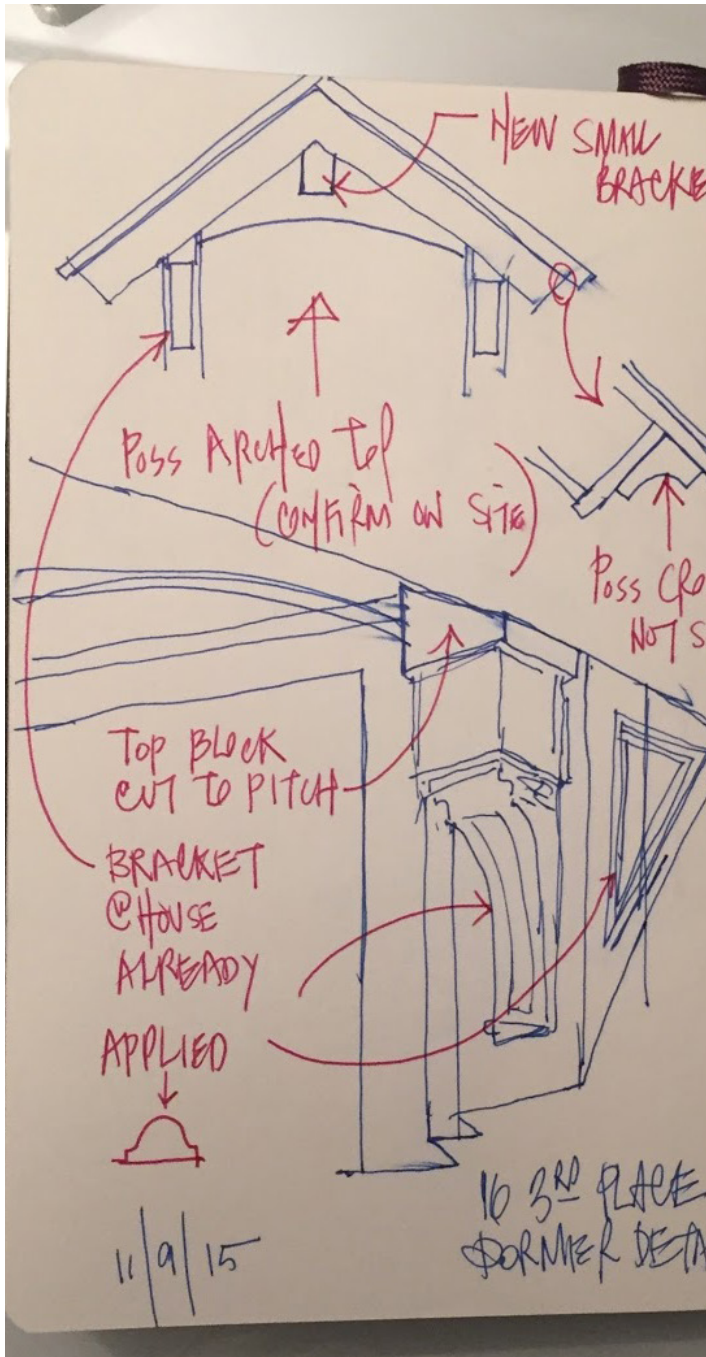 NEW SMALL
BRACKE
POSS ARCHED TOP
(CONFIRM ON SITE)
POSS CRO
NOT S
TOP BLOCK
CUT TO PITCH
BRACKET
@ HOUSE
ALREADY
APPLIED
11/9/15
16 3RD PLACE
DORMER DETA